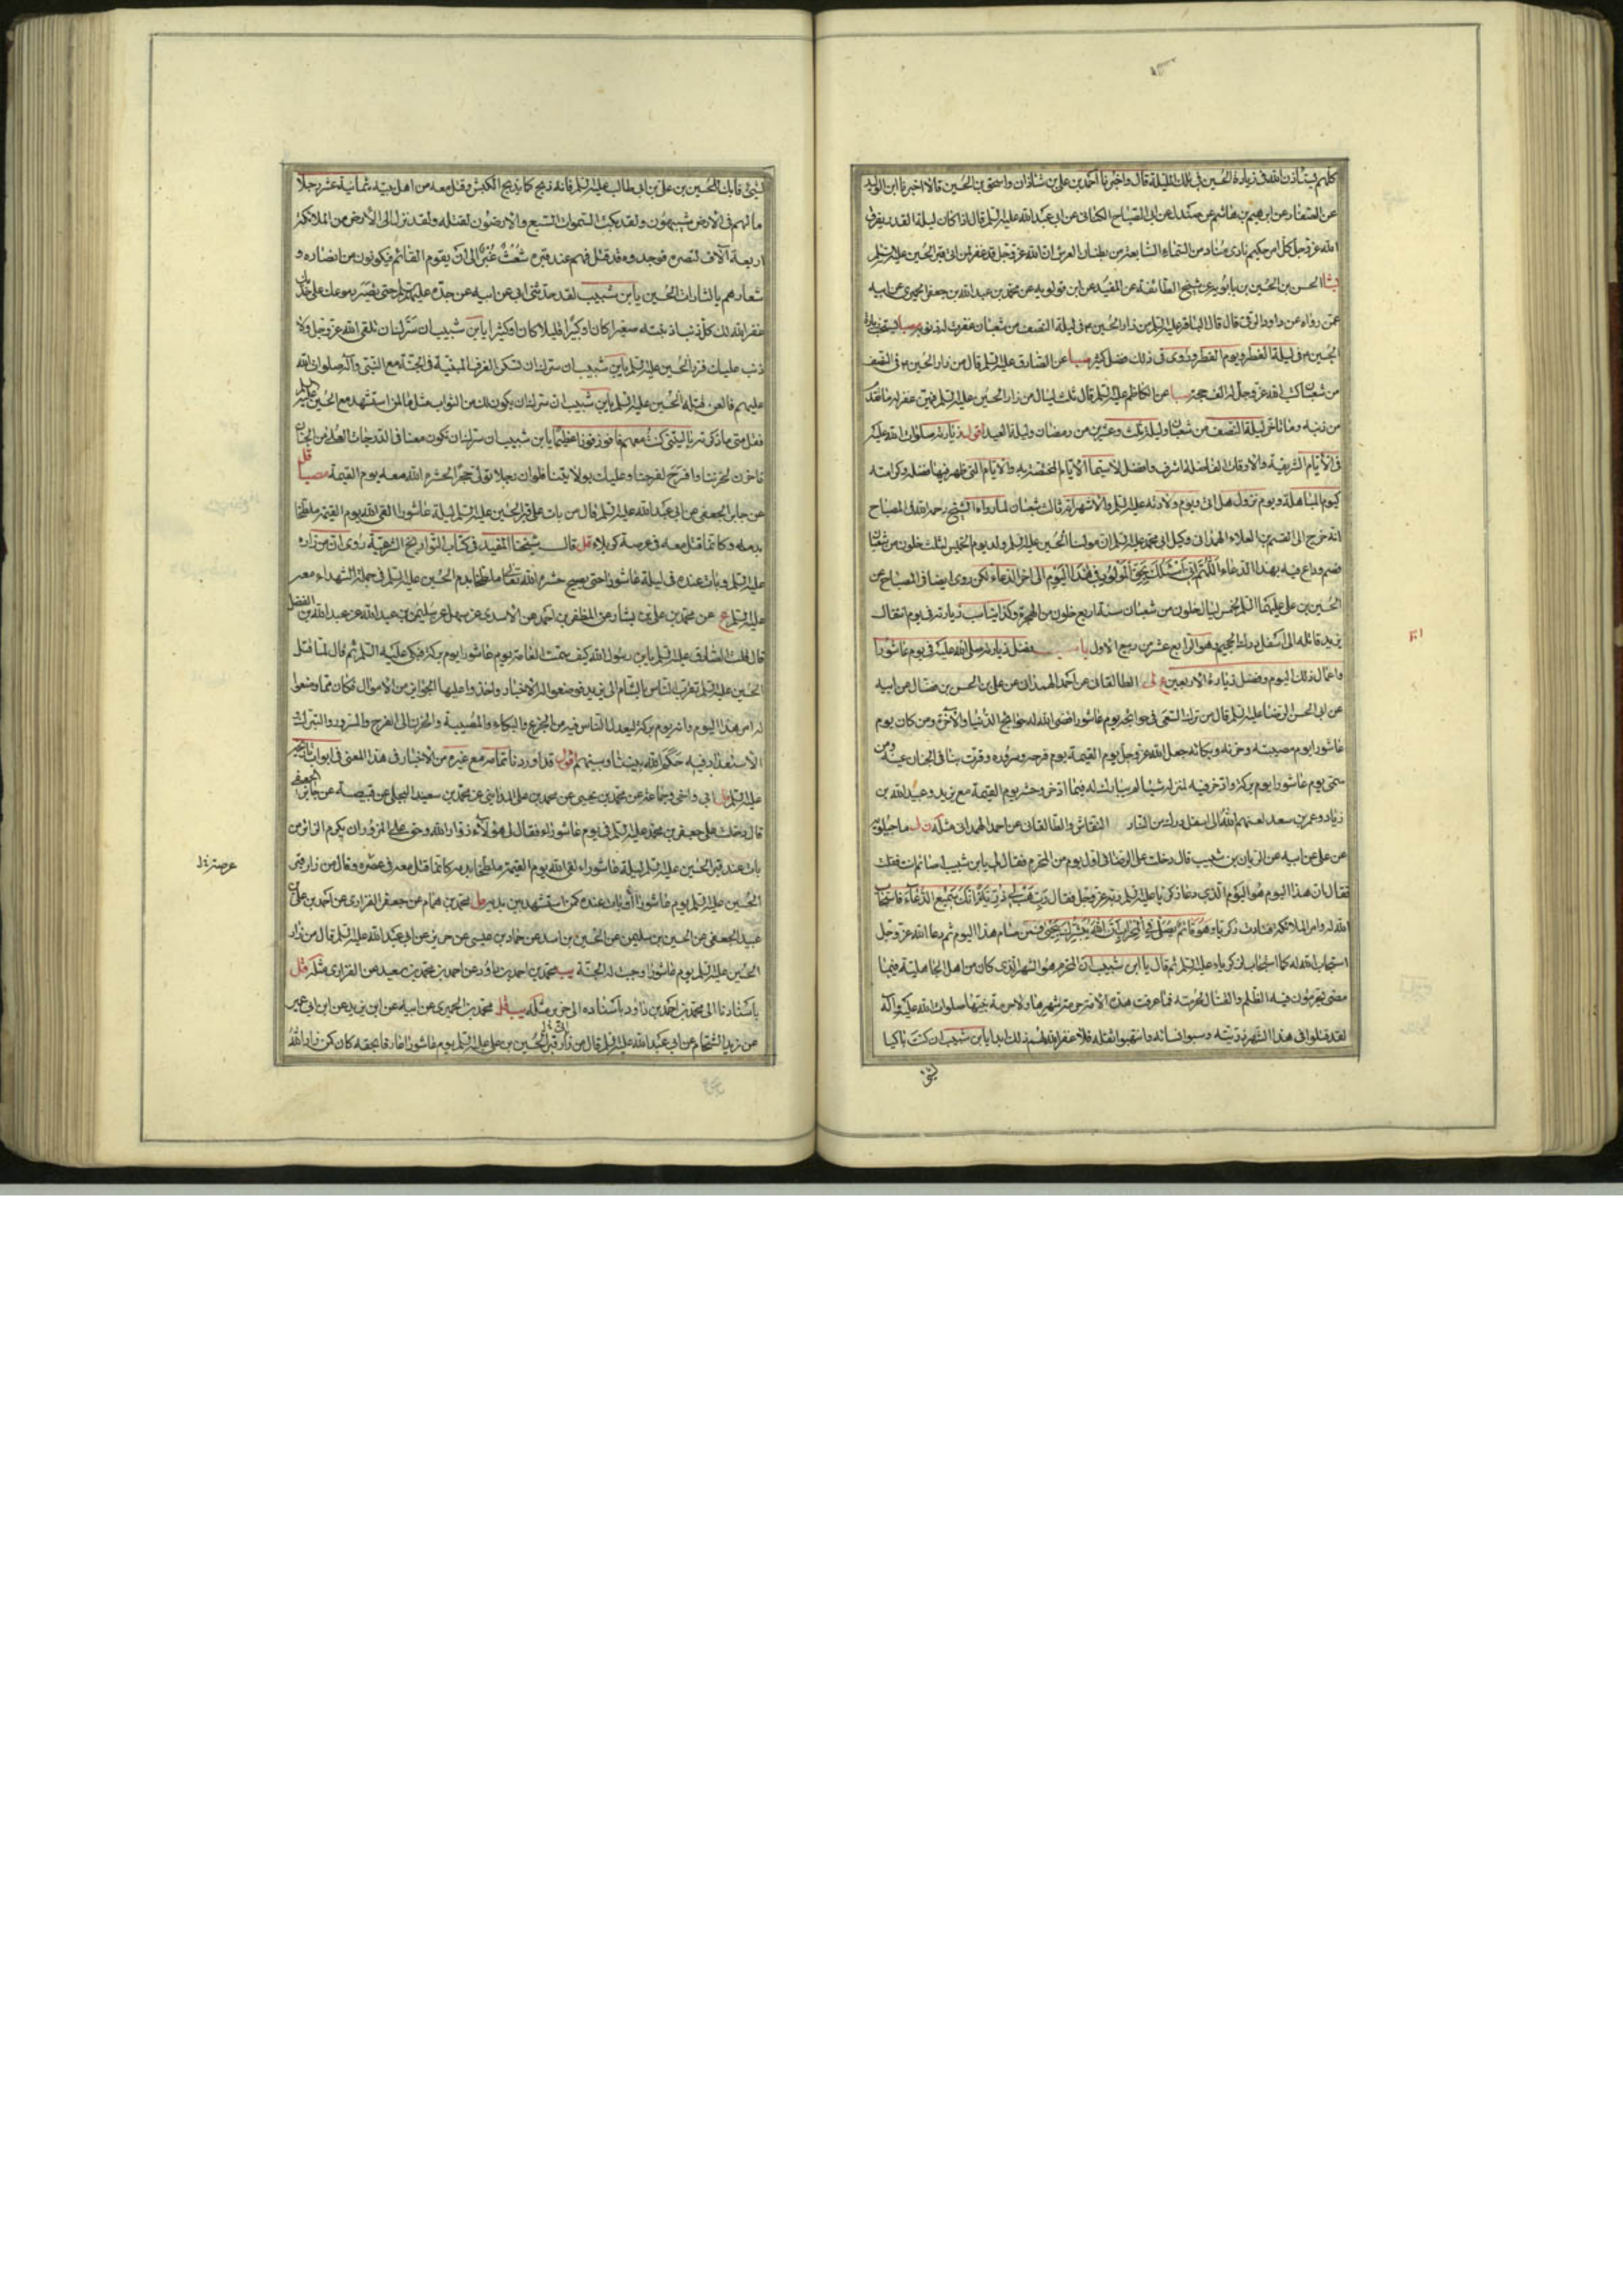 كلهم يستأذن الله في زيارة الحسين في تلك الليلة قال واخبرنا احمد بن علي بن شاذان واسحق بن الحسين قالا اخبرنا ابن الوليد
عن الصفار عن ابرهيم بن هاشم عن صندل عن ابي الصباح الكناني عن ابي عبد الله عليه السلم قال اذا كان ليلة القدر يفرق
الله عز وجل كل امر حكيم نادى مناد من السماء السابعة من بطنان العرش ان الله عز وجل قد غفر لمن اتى قبر الحسين عليه السلم
بشا الحسن بن الحسين بن بابويه عن شيخ الطائفة عن المفيد عن ابن قولويه عن محمد بن عبد الله بن جعفر الحميري عن ابيه
عمن رواه عن داود الرقي قال قال الباقر عليه السلم من زار الحسين في ليلة النصف من شعبان غفرت له ذنوبه صبا يستحب زيارة
الحسين في ليلة الفطر ويوم الفطر وروى في ذلك فضل كثير صبا عن الصادق عليه السلم قال من زار الحسين في النصف
من شعبان كتب الله عز وجل له الف حجة صبا عن الكاظم عليه السلم قال ثلث ليال من زار الحسين عليه السلم فيهن غفر له ما تقدم
من ذنبه وما تاخر ليلة النصف من شعبان وليلة ثلث وعشرين من رمضان وليلة العيد اقول زيارته صلوات الله عليه
في الايام الشريفة والاوقات الفاضلة اشرف وافضل لا سيما الايام المختصة به والايام التي ظهر فيها فضله وكرامته
كيوم المباهلة ويوم نزول هل اتى ويوم ولادته عليه السلم والاشهر انه ثالث شعبان لما رواه الشيخ رحمه الله في المصباح
انه خرج الى القسم بن العلاء الهمداني وكيل ابي محمد عليه السلم ان مولانا الحسين عليه السلم ولد يوم الخميس لثلث خلون من شعبان
فصم وادع فيه بهذا الدعاء اللهم اني اسئلك بحق المولود في هذا اليوم الى اخر الدعاء لكن روى ايضا في المصباح عن
الحسين بن علي عليهما السلم لخمس ليال خلون من شعبان سنة اربع خلون من الهجرة وكذا يناسب زيارته في يوم انتقال
يزيد قاتله الى اسفل درك الجحيم وهو الرابع عشر من ربيع الاول باب فضل زيارته صلوات الله عليه في يوم عاشورا
واعمال ذلك اليوم وفضل زيارة الاربعين ع لى الطالقاني عن احمد الهمداني عن علي بن الحسن بن فضال عن ابيه
عن ابي الحسن الرضا عليه السلم قال من ترك السعي في حوائجه يوم عاشورا قضى الله له حوائج الدنيا والاخرة ومن كان يوم
عاشورا يوم مصيبته وحزنه وبكائه جعل الله عز وجل يوم القيمة يوم فرحه وسروره وقرت بنا في الجنان عينه ومن
سمى يوم عاشورا يوم بركة وادخر فيه لمنزله شيئا لم يبارك له فيما ادخر وحشر يوم القيمة مع يزيد وعبيد الله بن
زياد وعمر بن سعد لعنهم الله الى اسفل درك من النار النقاش والطالقاني عن احمد الهمداني مثله ن لى ماجيلويه
عن علي عن ابيه عن الريان بن شبيب قال دخلت على الرضا في اول يوم من المحرم فقال لي يابن شبيب اصائم انت فقلت لا
فقال ان هذا اليوم هو اليوم الذي دعا زكريا عليه السلم ربه عز وجل فقال رب هب لي ذرية طيبة انك سميع الدعاء فاستجاب
الله له وامر الملائكة فنادت زكريا وهو قائم يصلي في المحراب ان الله يبشرك بيحيى فمن صام هذا اليوم ثم دعا الله عز وجل
استجاب الله له كما استجاب لزكرياء عليه السلم ثم قال يا ابن شبيب ان المحرم هو الشهر الذي كان من اهل الجاهلية فيما
مضى يحرمون فيه الظلم والقتال لحرمته فما عرفت هذه الامة حرمة شهرها ولا حرمة نبيها صلوات الله عليه وآله
لقد قتلوا في هذا الشهر ذريته وسبوا نسائه وانتهبوا ثقله فلا غفر الله لهم ذلك ابدا يابن شبيب ان كنت باكيا
لشئ
لشئ فابك للحسين بن علي بن ابي طالب عليه السلم فانه ذبح كما يذبح الكبش وقتل معه من اهل بيته ثمانية عشر رجلا
ما لهم في الارض شبيهون ولقد بكت السموات السبع والارضون لقتله ولقد نزل الى الارض من الملائكة
اربعة آلاف لنصره فوجدوه قد قتل فهم عند قبره شعث غبر الى ان يقوم القائم فيكونون من انصاره و
شعارهم يا لثارات الحسين يابن شبيب لقد حدثني ابي عن ابيه عن جده
غفر الله لك كل ذنب اذنبته صغيرا كان او كبيرا قليلا كان او كثيرا يابن شبيب ان سرك ان تلقى الله عز وجل ولا
ذنب عليك فزر الحسين عليه السلم يابن شبيب ان سرك ان تسكن الغرف المبنية في الجنة مع النبي وآله صلوات الله
عليهم فالعن قتلة الحسين عليه السلم يابن شبيب ان سرك ان يكون لك من الثواب مثل ما لمن استشهد مع الحسين عليه السلم
فقل متى ما ذكرته يا ليتني كنت معهم فافوز فوزا عظيما يابن شبيب ان سرك ان تكون معنا في الدرجات العلى من الجنان
فاحزن لحزننا وافرح لفرحنا وعليك بولايتنا فلو ان رجلا تولى حجرا لحشره الله معه يوم القيمة مصبا قل
عن جابر الجعفي عن ابي عبد الله عليه السلم قال من بات على قبر الحسين عليه السلم ليلة عاشورا لقى الله يوم القيمة ملطخا
بدمه وكانما قتل معه في عرصة كربلاء قل قال شيخنا المفيد في كتاب التواريخ الشرعية روى ان من زاره
عليه السلم وبات عنده في ليلة عاشورا حتى يصبح حشره الله تعالى ملطخا بدم الحسين عليه السلم في جملة الشهداء معه
عليه السلم ع عن محمد بن علي بن بشار عن المظفر بن احمد عن الاسدي عن سهل عن سليمن بن عبد الله عن عبد الله بن الفضل
قال قلت للصادق عليه السلم يابن رسول الله كيف سمت العامة يوم عاشورا يوم بركة فبكى عليه السلم ثم قال لما قتل
الحسين عليه السلم تقرب الناس بالشام الى يزيد فوضعوا له الاخبار واخذوا عليها الجوائز من الاموال فكان مما وضعوا
له امر هذا اليوم وانه يوم بركة ليعدل الناس فيه من الجزع والبكاء والمصيبة والحزن الى الفرح والسرور والتبرك
الاستعداد فيه حكم الله بيننا وبينهم اقول قد اوردنا تمامه مع غيره من الاخبار في هذا المعنى في ابواب تاريخه
عليه السلم مل ابي واخي وجماعة عن محمد بن يحيى عن محمد بن علي المدايني عن محمد بن سعيد البجلي عن قبيصة عن جابر الجعفي
قال دخلت على جعفر بن محمد عليه السلم في يوم عاشوراء فقال لي هؤلاء زوار الله وحق على المزور ان يكرم الزائر من
بات عند قبر الحسين عليه السلم ليلة عاشوراء لقى الله يوم القيمة ملطخا بدمه كانما قتل معه في عصره وقال من زار قبر
عرصته خ ل
الحسين عليه السلم يوم عاشورا او بات عنده كمن استشهد بين يديه مل محمد بن همام عن جعفر الفزاري عن احمد بن علي بن
عبيد الجعفي عن الحسين بن سليمن عن الحسين بن اسد عن حماد بن عيسى عن حريز عن ابي عبد الله عليه السلم قال من زار
الحسين عليه السلم يوم عاشورا وجبت له الجنة يب محمد بن احمد بن داود عن احمد بن محمد بن سعيد عن الفزاري مثله قل
باسنادنا الى محمد بن احمد بن داود باسناده الى حريز مثله يب قل محمد بن الحميري عن ابيه عن ابن يزيد عن ابن ابي عمير
عن زيد الشحام عن ابي عبد الله عليه السلم قال من زار قبر الحسين بن علي عليه السلم يوم عاشورا عارفا بحقه كان كمن زار الله